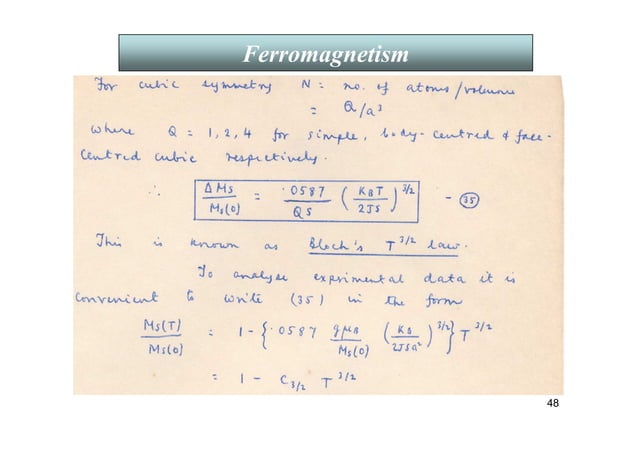 Ferromagnetism
For cubic symmetry N = no. of atoms/volume
= Q/a³
where Q = 1, 2, 4 for simple, body-centred & face-
centred cubic respectively.
∴ ΔMs/Ms(0) = ·0587/QS (KBT/2JS)^3/2 - (35)
This is known as Bloch's T^3/2 law.
To analyse experimental data it is
convenient to write (35) in the form
Ms(T)/Ms(0) = 1 - {·0587 gμB/Ms(0) (KB/2JSa²)^3/2} T^3/2
= 1 - C3/2 T^3/2
48